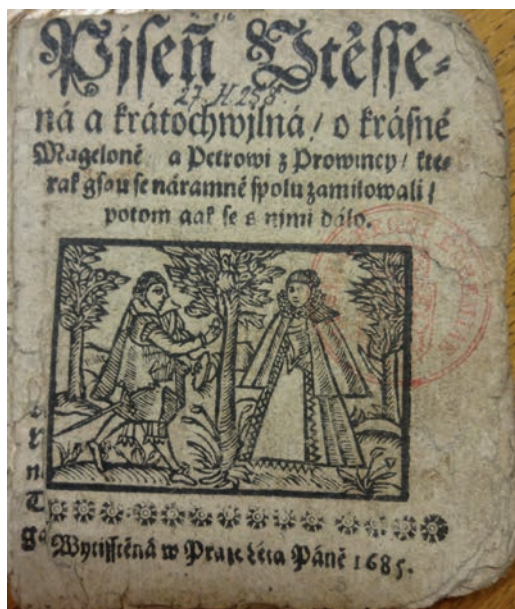 Pjseň Vtěsse-
27 H 238.
ná a kratochwjlná / o krásné
Mageloně a Petrowi z Prowincy / kte-
rak gsau se náramně spolu zamilowali /
potom gak se s njmi dálo.
Wytisstěná w Praze Léta Páně 1685.